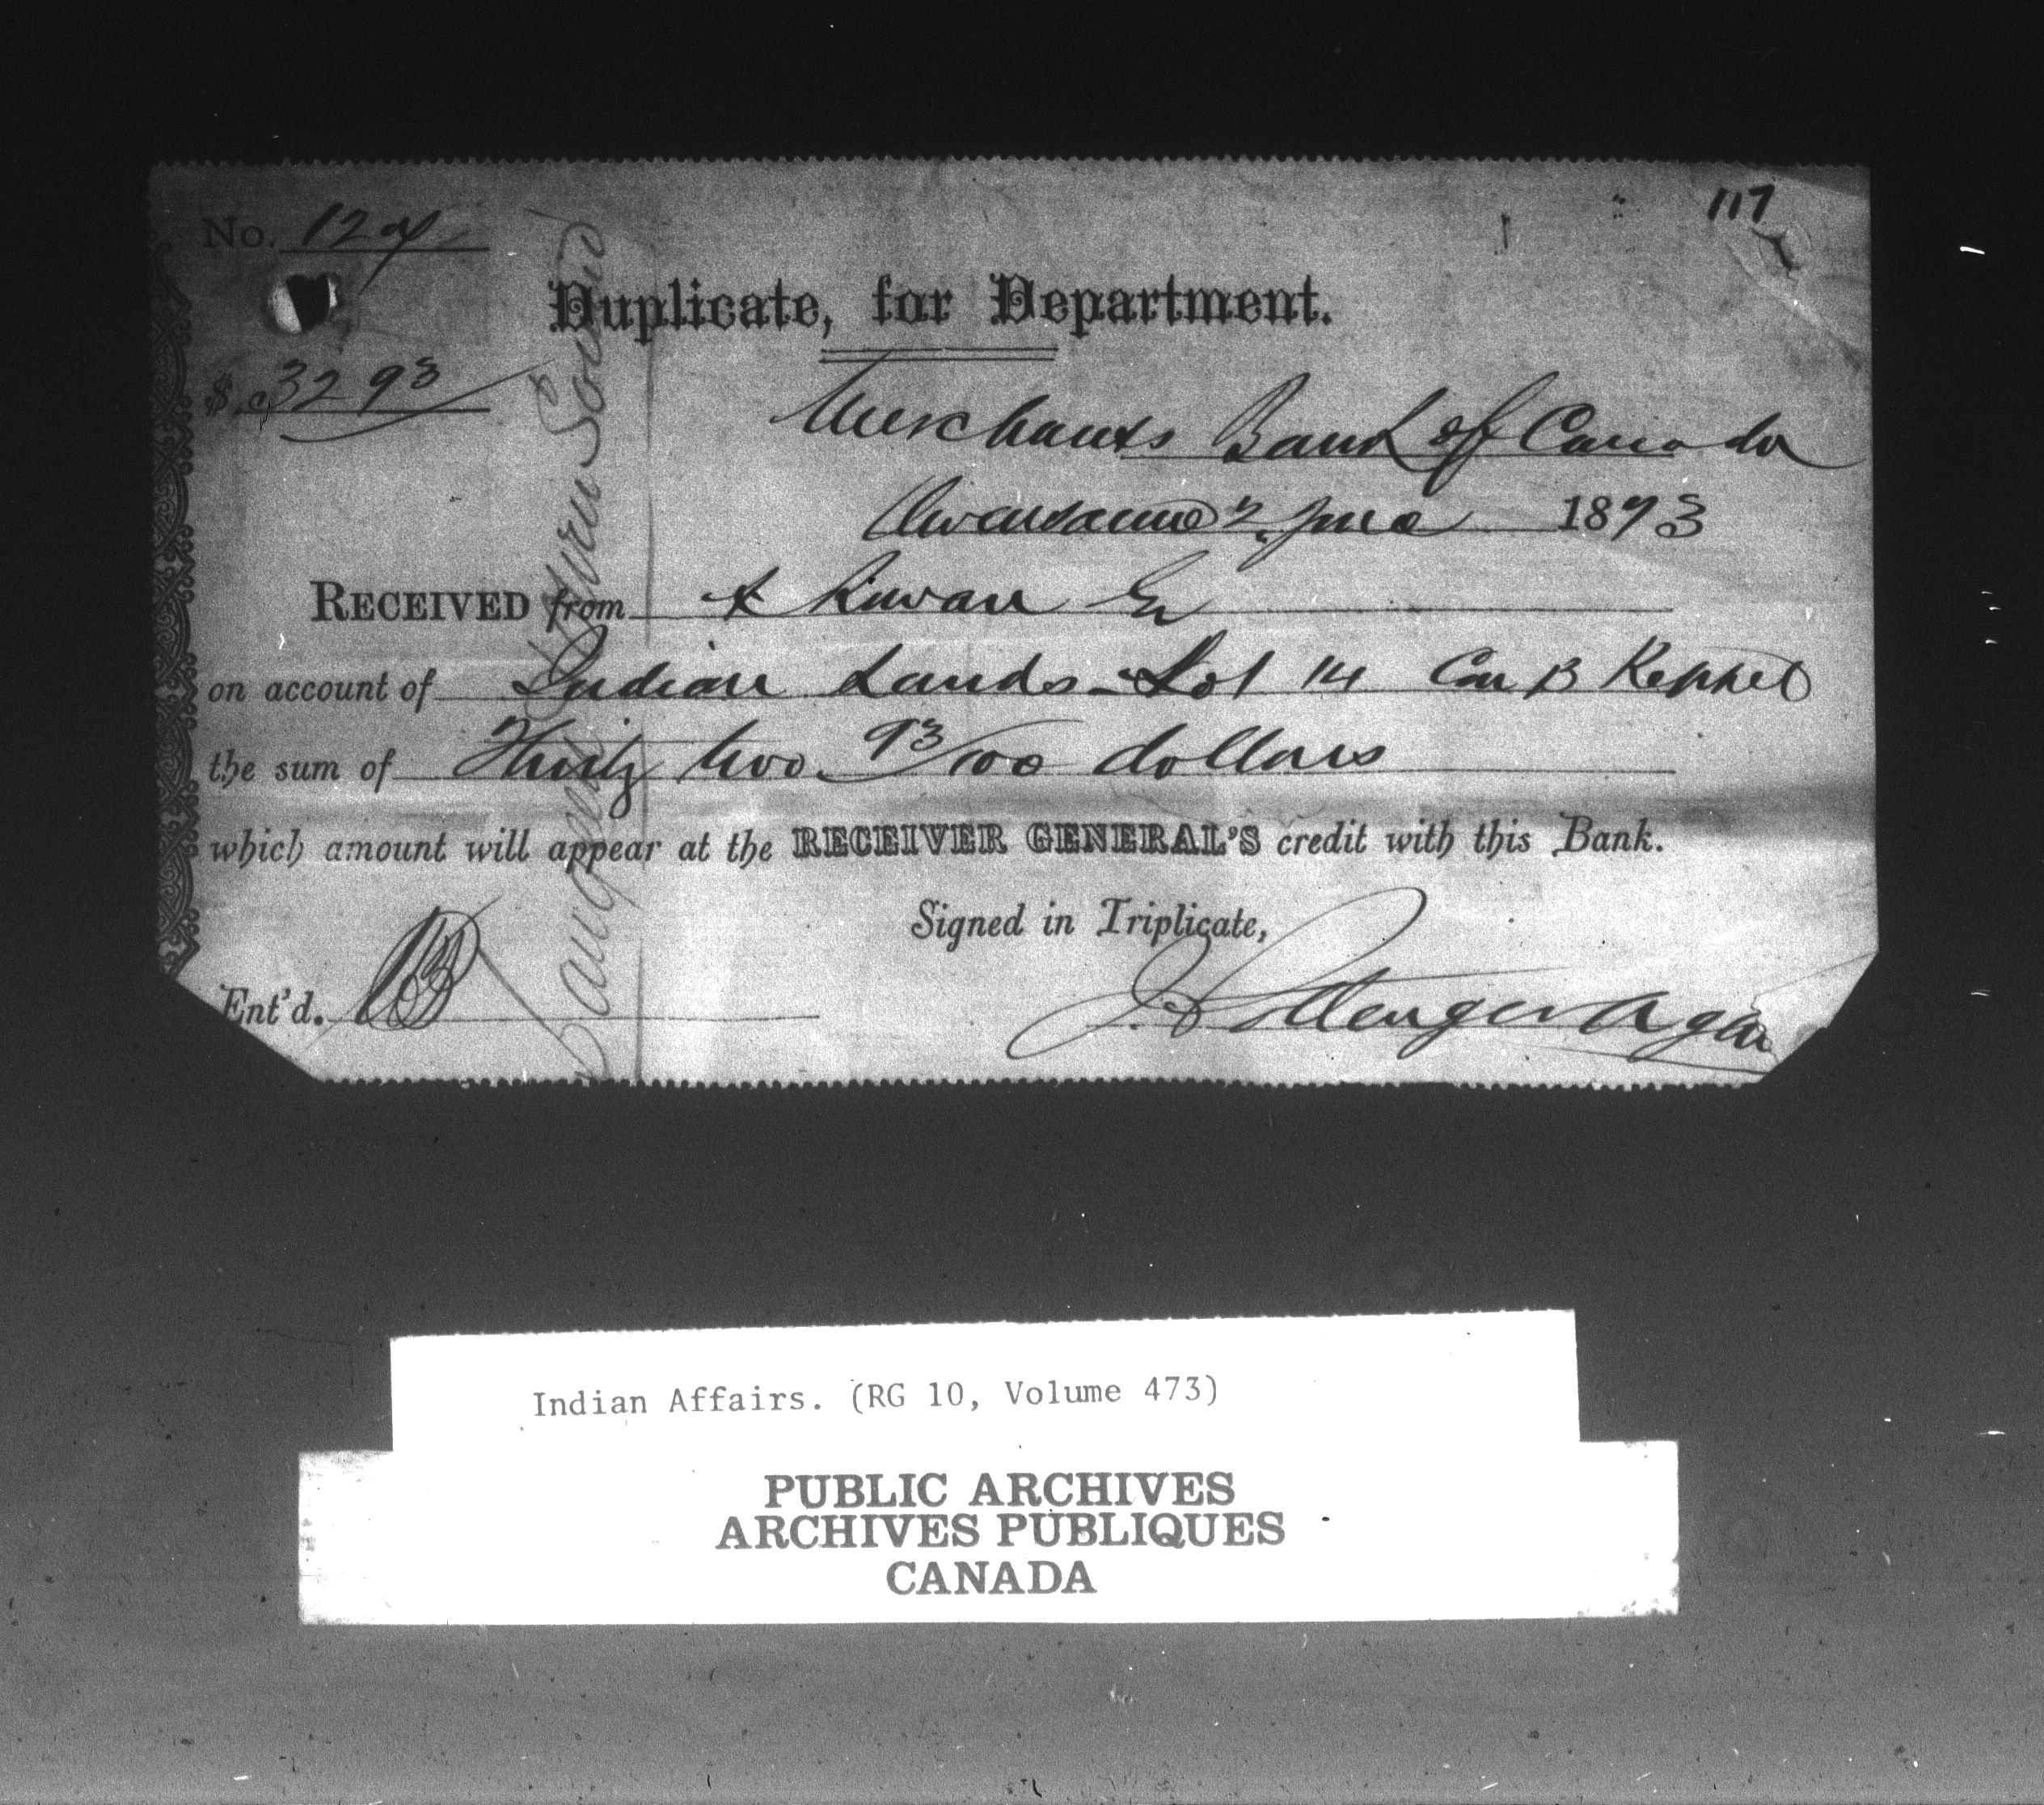 117
No. 124
Duplicate, for Department.
$ 32 93
Merchants Bank of Canada
Owensound 2 June 1873
RECEIVED from A
on account of Indian Lands - Lot 14 Con B Keppel
the sum of Thirty two 93/100 dollars
which amount will appear at the RECEIVER GENERAL'S credit with this Bank.
Signed in Triplicate,
Ent'd.
Saugeen Owen Sound
Indian Affairs. (RG 10, Volume 473)
PUBLIC ARCHIVES
ARCHIVES PUBLIQUES
CANADA